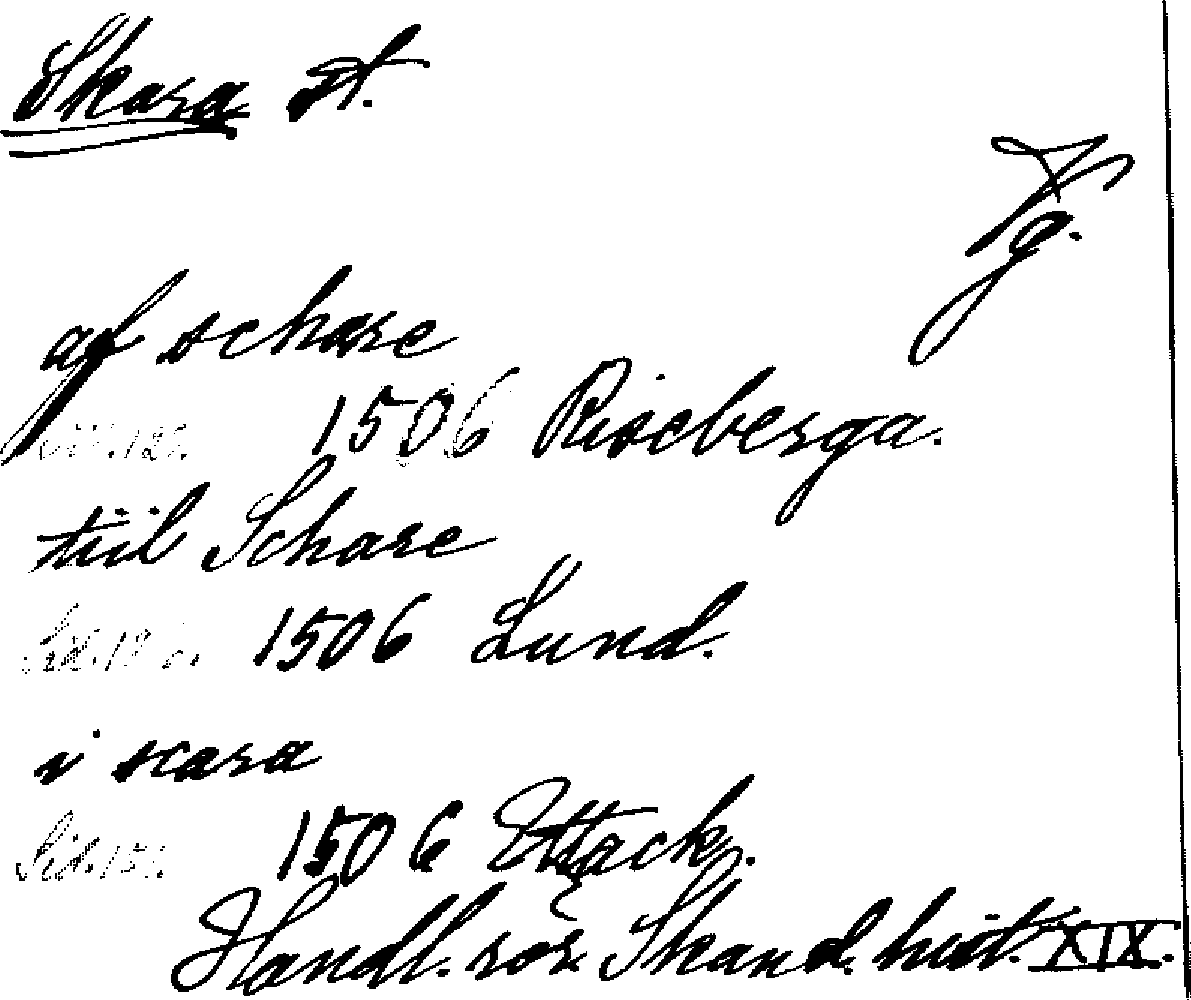 Skara st.
Vg.
af schare
1506 Riseberga.
tiil Schare
1506 Lund.
i scara
Sid. 151. 1506 Ettack.
Handl. rör. Skand. hist. XIX.